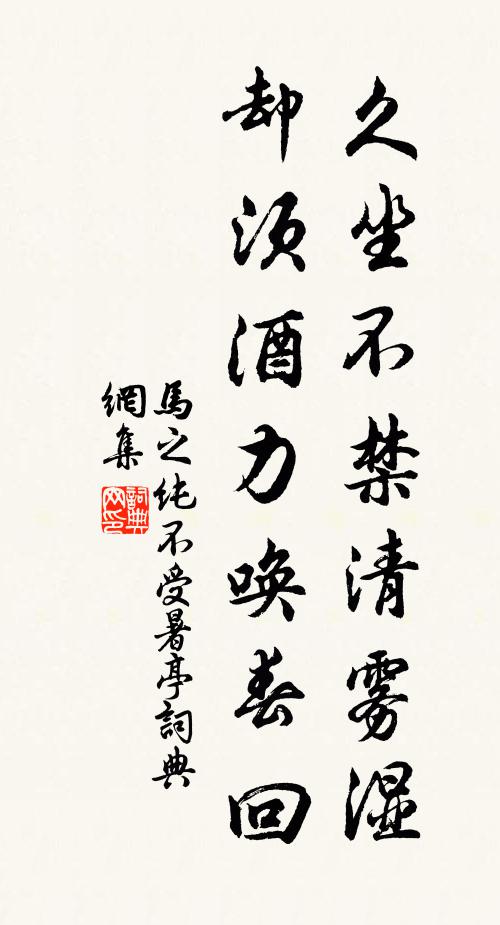 久坐不禁清雾湿
却须酒力唤春回
馬之纯不受暑亭詞典
網集
詞典
网印